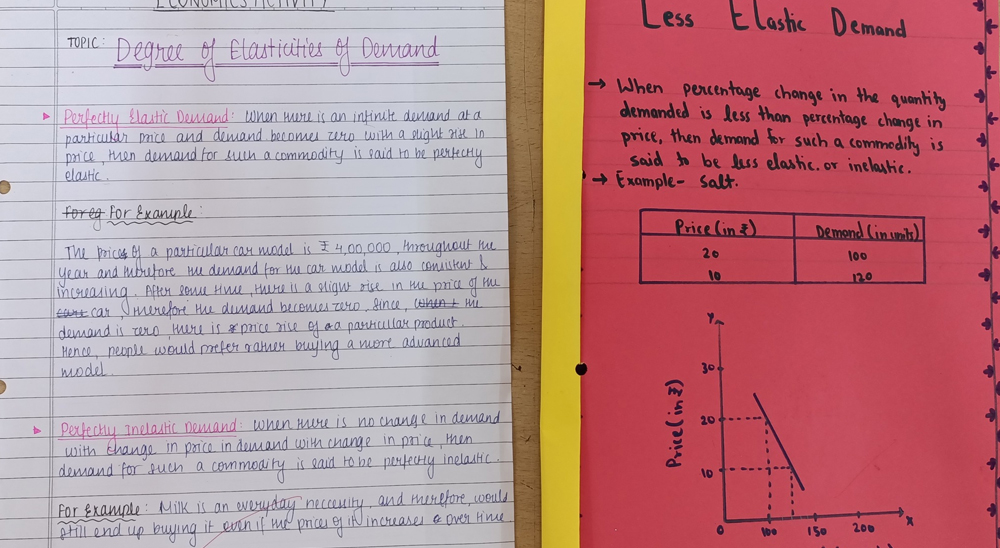 ECONOMICS ACTIVITY
TOPIC: Degree of Elasticities of Demand
Perfectly Elastic Demand: When there is an infinite demand at a
particular price and demand becomes zero with a slight rise in
price, then demand for such a commodity is said to be perfectly
elastic.
For eg For Example:
The price of a particular car model is ₹ 4,00,000, throughout the
year and therefore the demand for the car model is also consistent &
increasing. After some time, there is a slight rise in the price of the
car, therefore the demand becomes zero, since, when the
demand is zero, there is price rise of a particular product.
Hence, people would prefer rather buying a more advanced
model.
Perfectly Inelastic Demand: When there is no change in demand
with change in price in demand with change in price, then
demand for such a commodity is said to be perfectly inelastic.
For Example: Milk is an everyday neccesity, and therefore, would
still end up buying it even if the prices of it increases over time.
Less Elastic Demand
→ When percentage change in the quantity
demanded is less than percentage change in
price, then demand for such a commodity is
said to be less elastic. or inelastic.
→ Example- Salt.
Price (in ₹) Demand (in units)
20 100
10 120
Y
30
20
10
Price (in ₹)
0 100 150 200 X